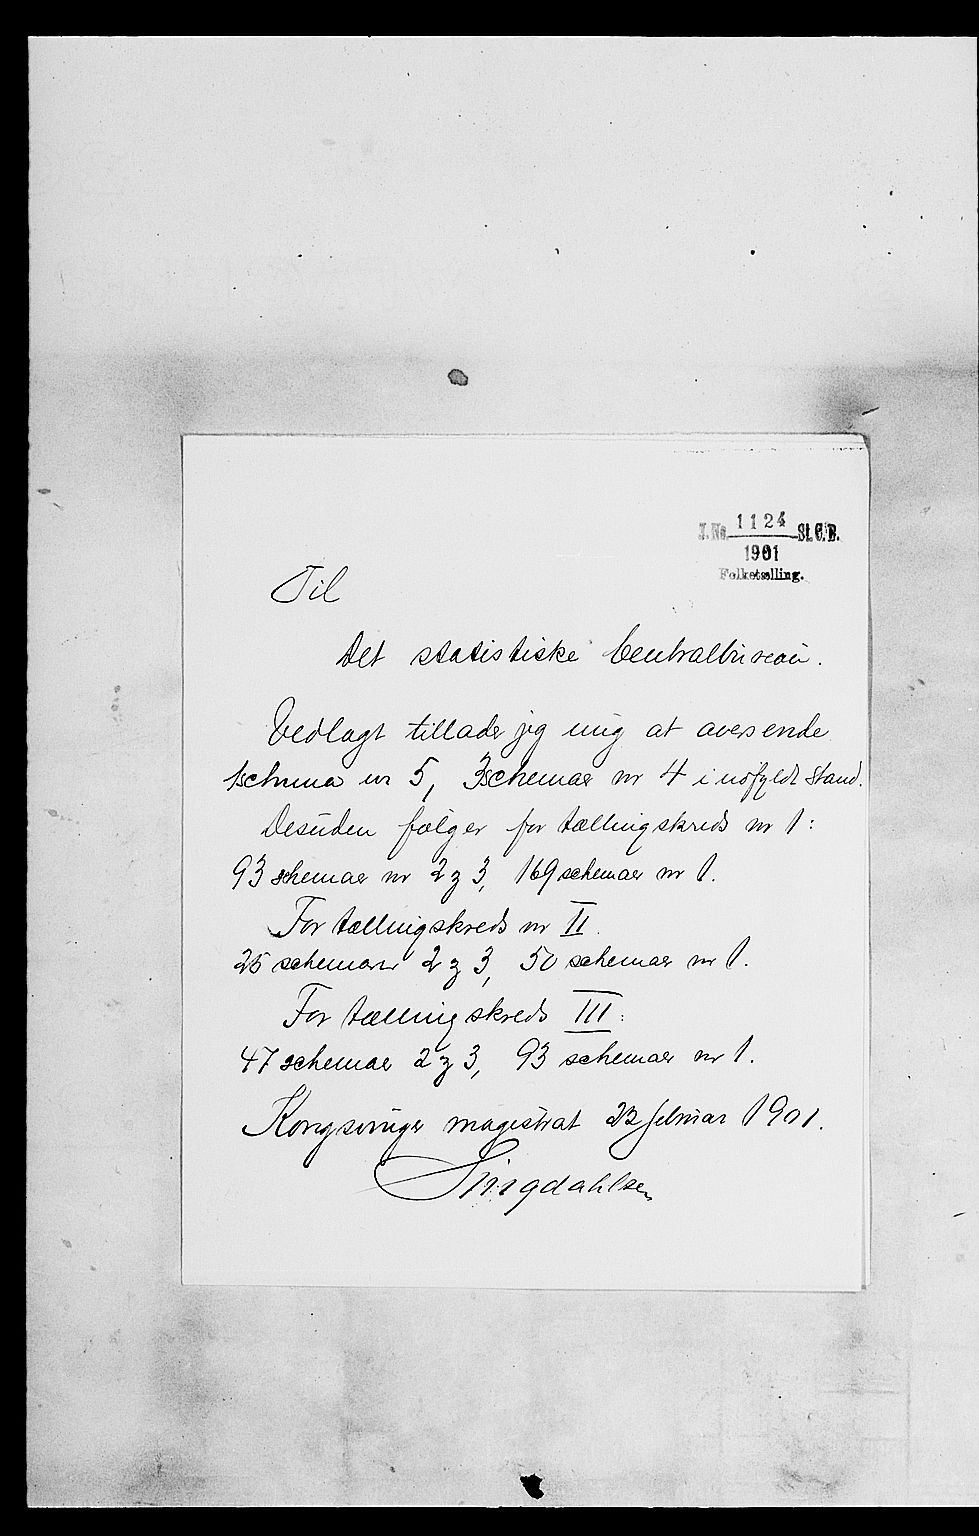 J.No. 1124 St.C.B.
1901
Folketælling.
Til
Det statistiske Centralbureau.
Vedlagt tillader jeg mig at oversende
1 schema nr 5, 3 schemaer nr 4 i udfyldt stand.
Desuden følger for tællingskreds nr 1:
93 schemaer nr 2 & 3, 169 schemaer nr 1.
For tællingskreds nr II.
25 schemaer 2 & 3, 50 schemaer nr 1.
For tællingskreds III:
47 schemaer 2 & 3, 93 schemaer nr 1.
Kongsvinger magistrat februar 1901.